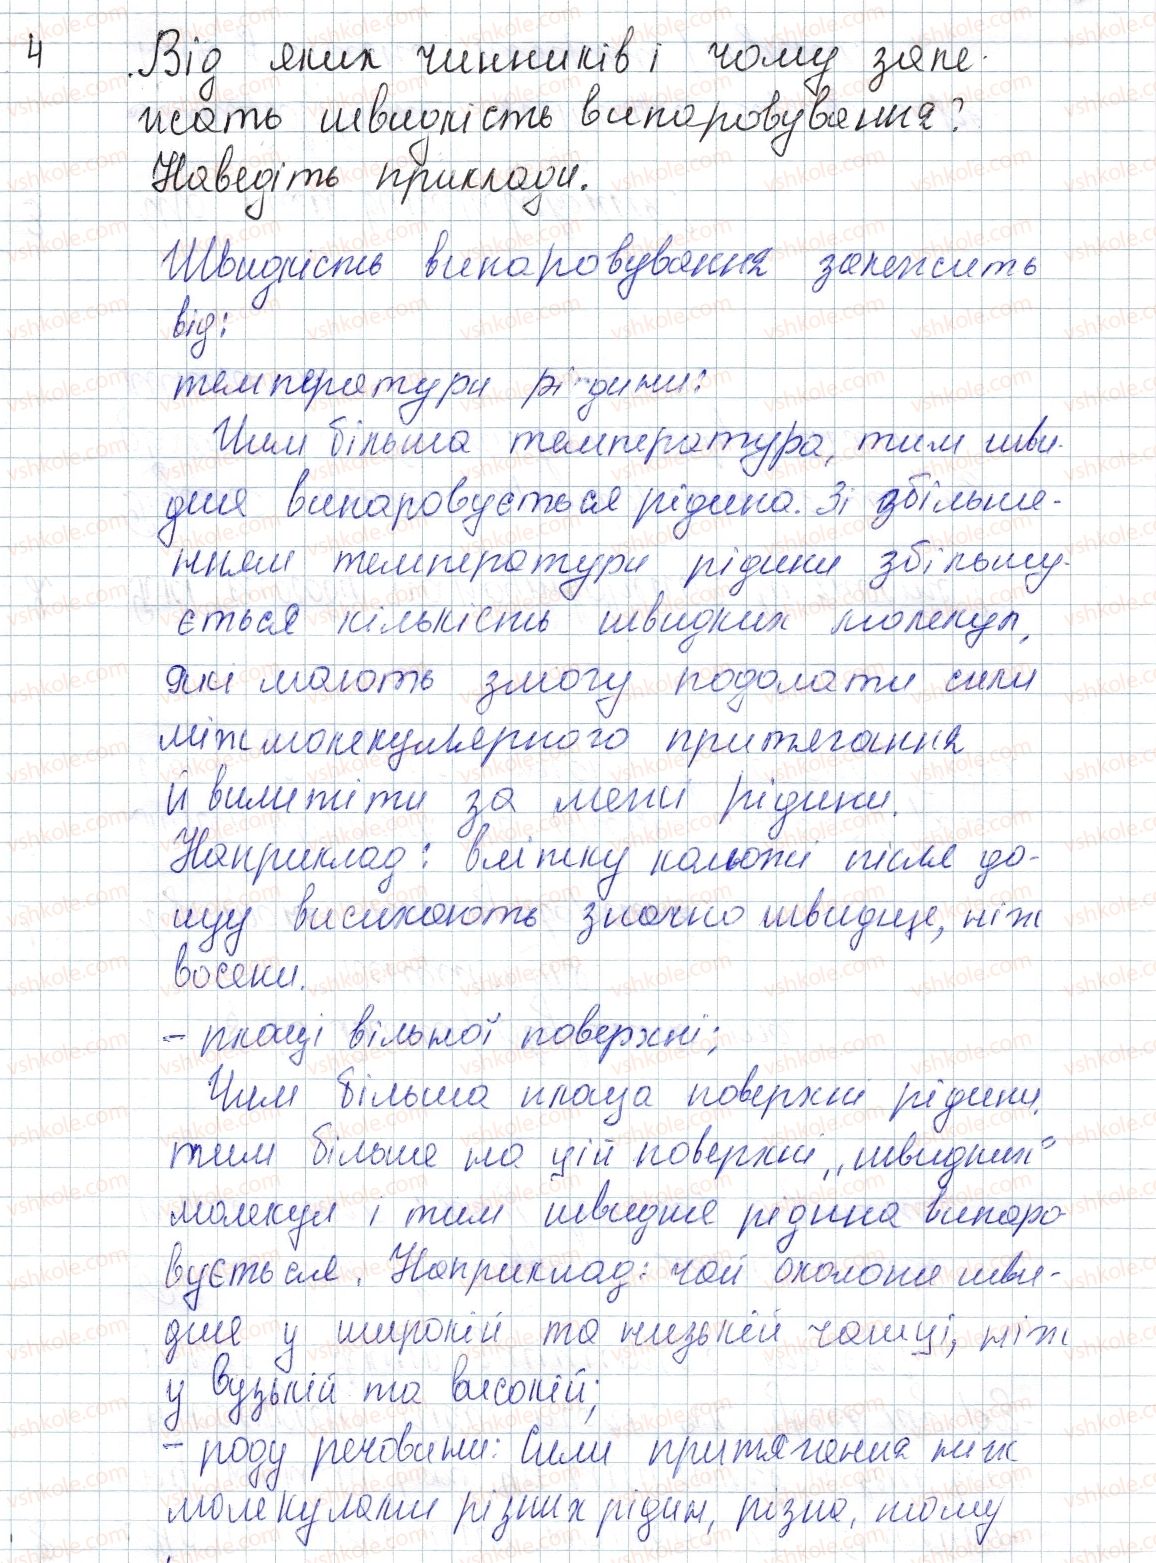 4 Від яких чинників і чому зале-
жать швидкість випаровування?
Наведіть приклади.
Швидкість випаровування залежить
від:
температури рідини:
Чим більша температура, тим шви-
дше випаровується рідина. Зі збільше-
нням температури рідини збільшу-
ється кількість швидких молекул,
які мають змогу подолати сили
міжмолекулярного притягання
й вилетіти за межі рідини.
Наприклад: влітку калюжі після до-
щу висихають значно швидше, ніж
восени.
- площі вільної поверхні;
Чим більша площа поверхні рідини,
тим більше на цій поверхні „швидких"
молекул і тим швидше рідина випаро
вується. Наприклад: чай охолоне шви-
дше у широкій та низькій чашці, ніж
у вузькій та високій;
- роду речовини: Сили притягання між
молекулами різних рідин, різна, тому